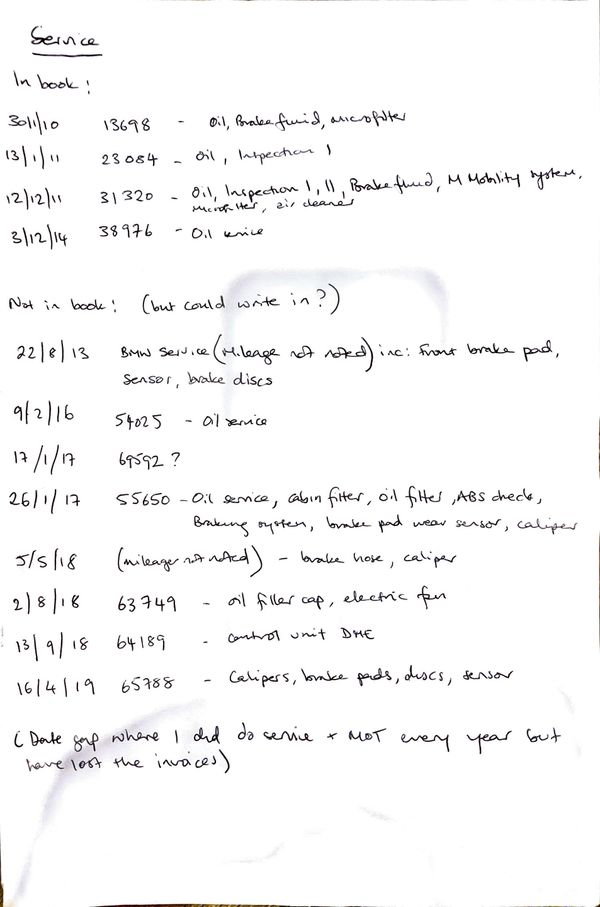 Service
In book:
30/1/10 13698 - Oil, Brake fluid, microfilter
13/1/11 23084 - Oil, Inspection 1
12/12/11 31320 - Oil, Inspection 1, 11, Brake fluid, M Mobility system,
microfilter, air cleaner
3/12/14 38976 - Oil service
Not in book: (but could write in?)
22/8/13 BMW Service (Mileage not noted) inc: Front brake pad,
sensor, brake discs
9/2/16 54025 - oil service
17/1/17 69592?
26/1/17 55650 - Oil service, cabin filter, oil filter, ABS check,
Braking system, brake pad wear sensor, caliper
5/5/18 (mileage not noted) - brake hose, caliper
2/8/18 63749 - oil filler cap, electric fan
13/9/18 64189 - control unit DME
16/4/19 65788 - Calipers, brake pads, discs, sensor
(Date gap where I did do service + MOT every year but
have lost the invoices)